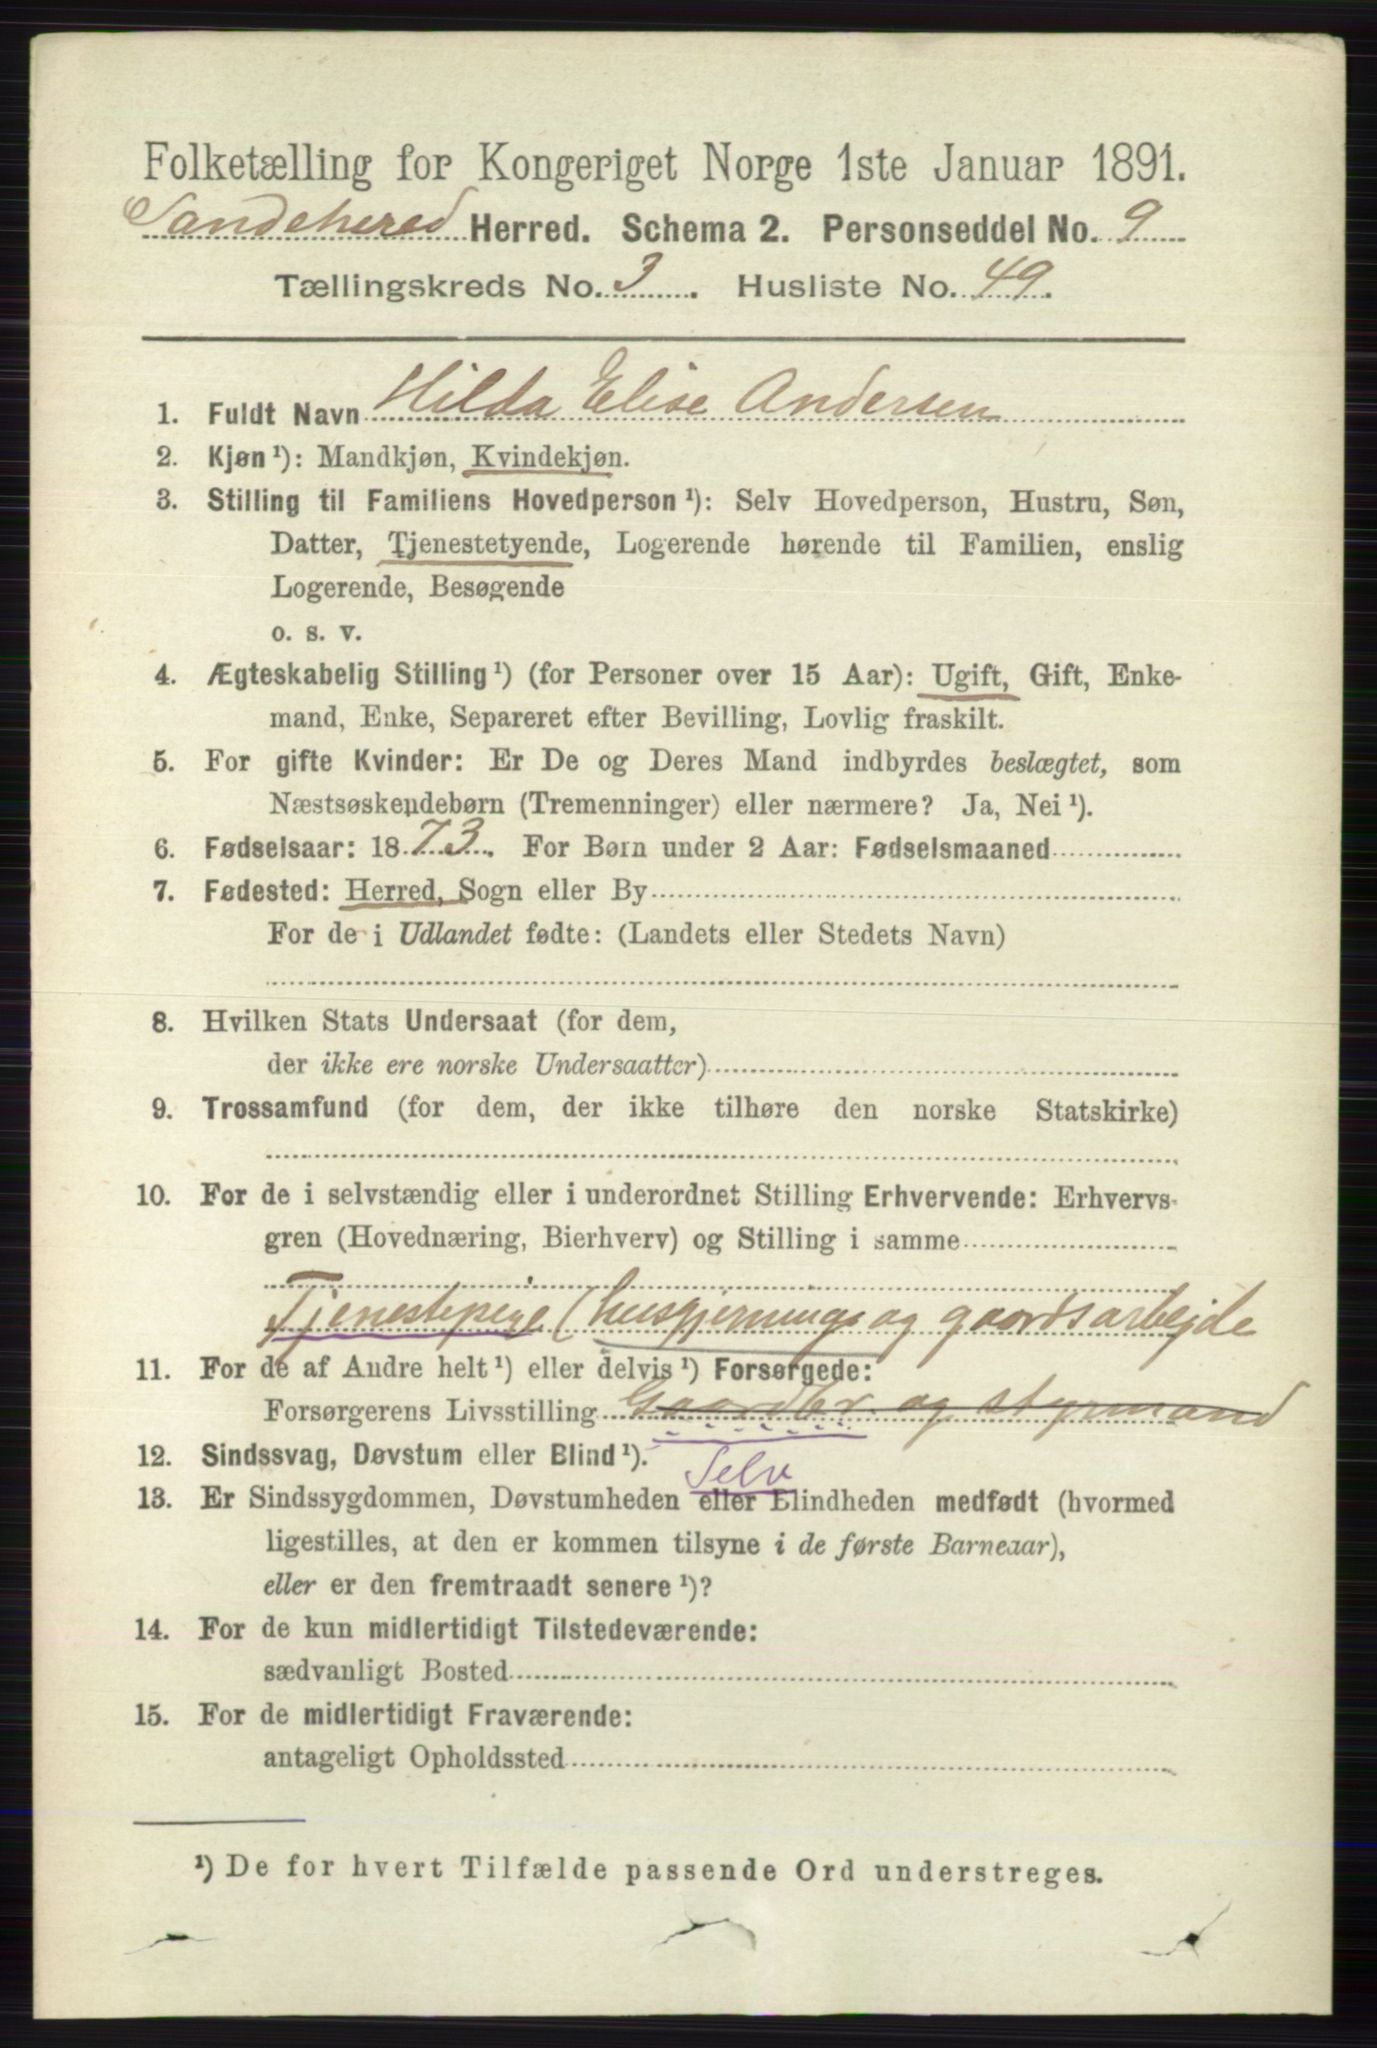 Folketælling for Kongeriget Norge 1ste Januar 1891.
Sandeherred Herred. Schema 2. Personseddel No. 9
Tællingskreds No. 3. Husliste No. 49.
1. Fuldt Navn Hilda Elise Andersen
2. Kjøn ¹): Mandkjøn, Kvindekjøn.
3. Stilling til Familiens Hovedperson ¹): Selv Hovedperson, Hustru, Søn,
Datter, Tjenestetyende, Logerende hørende til Familien, enslig
Logerende, Besøgende
o. s. v.
4. Ægteskabelig Stilling ¹) (for Personer over 15 Aar): Ugift, Gift, Enke-
mand, Enke, Separeret efter Bevilling, Lovlig fraskilt.
5. For gifte Kvinder: Er De og Deres Mand indbyrdes beslægtet, som
Næstsøskendebørn (Tremenninger) eller nærmere? Ja, Nei ¹).
6. Fødselsaar: 1873. For Børn under 2 Aar: Fødselsmaaned
7. Fødested: Herred, Sogn eller By
For de i Udlandet fødte: (Landets eller Stedets Navn)
8. Hvilken Stats Undersaat (for dem,
der ikke ere norske Undersaatter)
9. Trossamfund (for dem, der ikke tilhøre den norske Statskirke)
10. For de i selvstændig eller i underordnet Stilling Erhvervende: Erhvervs-
gren (Hovednæring, Bierhverv) og Stilling i samme
Tjenestepige (husgjernings og gaardsarbejde
11. For de af Andre helt ¹) eller delvis ¹) Forsørgede:
Forsørgerens Livsstilling Gaardbr. og styrmand
12. Sindssvag, Døvstum eller Blind ¹).
Selv
13. Er Sindssygdommen, Døvstumheden eller Blindheden medfødt (hvormed
ligestilles, at den er kommen tilsyne i de første Barneaar),
eller er den fremtraadt senere ¹)?
14. For de kun midlertidigt Tilstedeværende:
sædvanligt Bosted
15. For de midlertidigt Fraværende:
antageligt Opholdssted
¹) De for hvert Tilfælde passende Ord understreges.